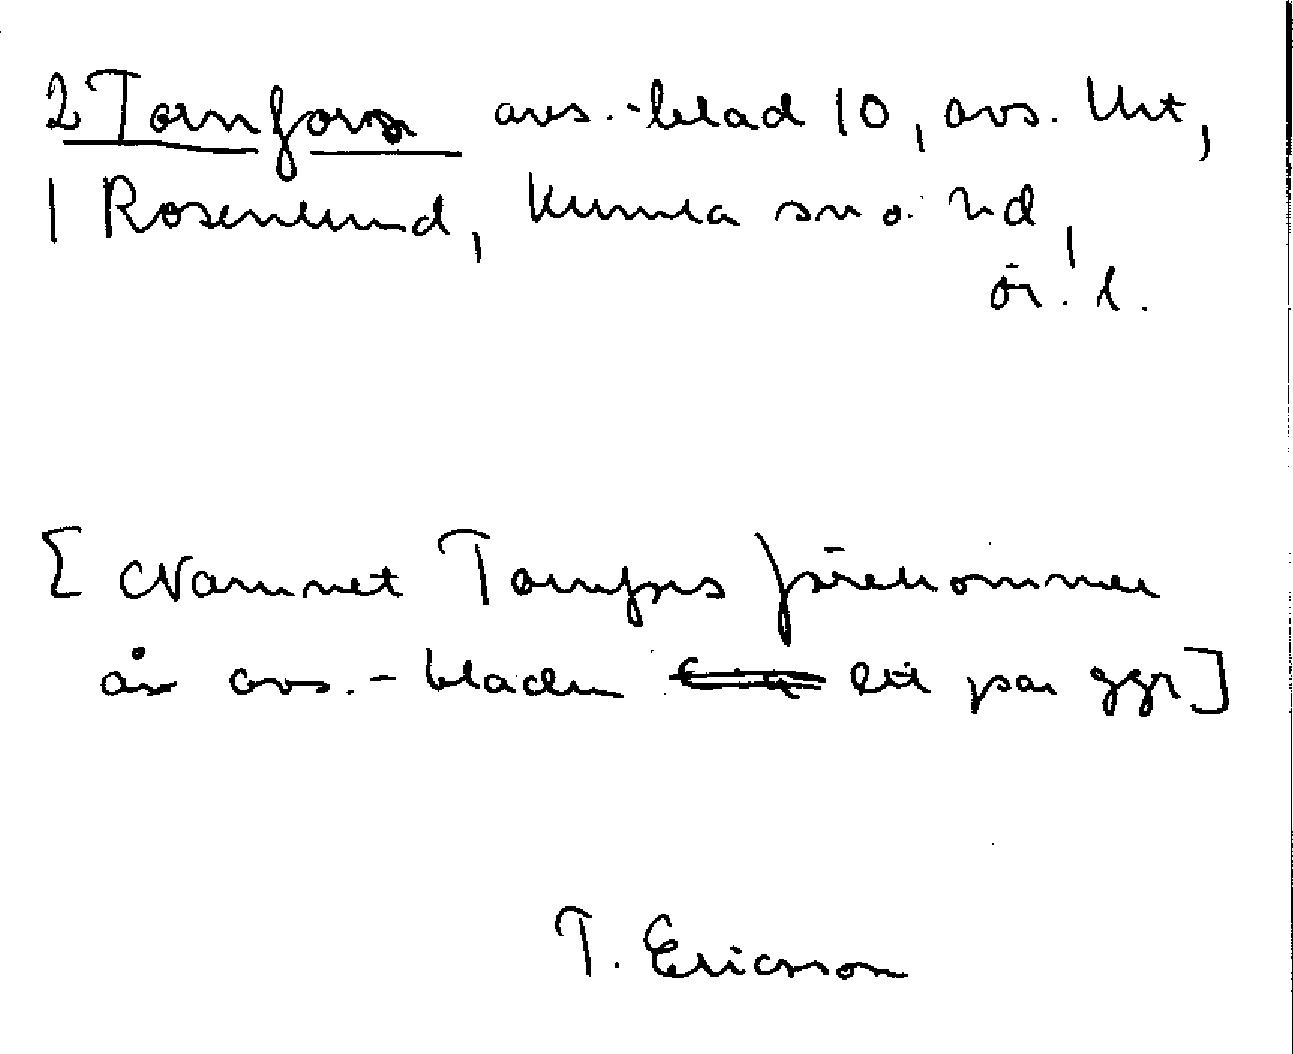 2 Tornfors avs.-blad 10, avs. Urt,
1 Rosenlund, Kumla sn o. hd,
ör. l.
[Namnet Tornfors förekommer
år avs.-bladen ett par ggr]
T. Ericsson